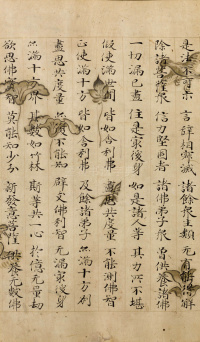 是法不可示 言辭相寂滅 諸餘衆生類 无有能得解
除諸菩薩衆 信力堅固者 諸佛弟子衆 曾供養諸佛
一切漏已盡 住是最後身 如是諸人等 其力所不堪
假使滿世間 皆如舍利弗 盡思共度量 不能測佛智
正使滿十方 皆如舍利弗 及餘諸弟子 亦滿十方刹
盡思共度量 亦復不能知 辟支佛利智 无漏最後身
亦滿十方界 其數如竹林 斯等共一心 於億无量劫
欲思佛實智 莫能知少分 新發意菩薩 供養无數佛